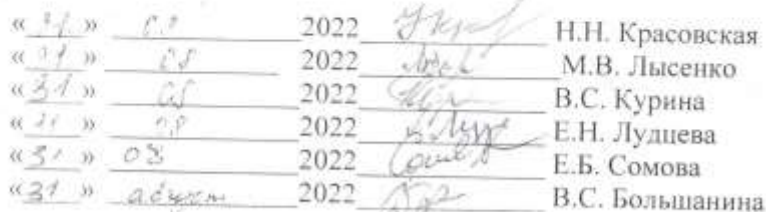 « 31 » 08 2022 Н.Н. Красовская
« 31 » 08 2022 М.В. Лысенко
« 31 » 08 2022 В.С. Курина
« 31 » 08 2022 Е.Н. Лудцева
« 31 » 08 2022 Е.Б. Сомова
« 31 » август 2022 В.С. Большанина